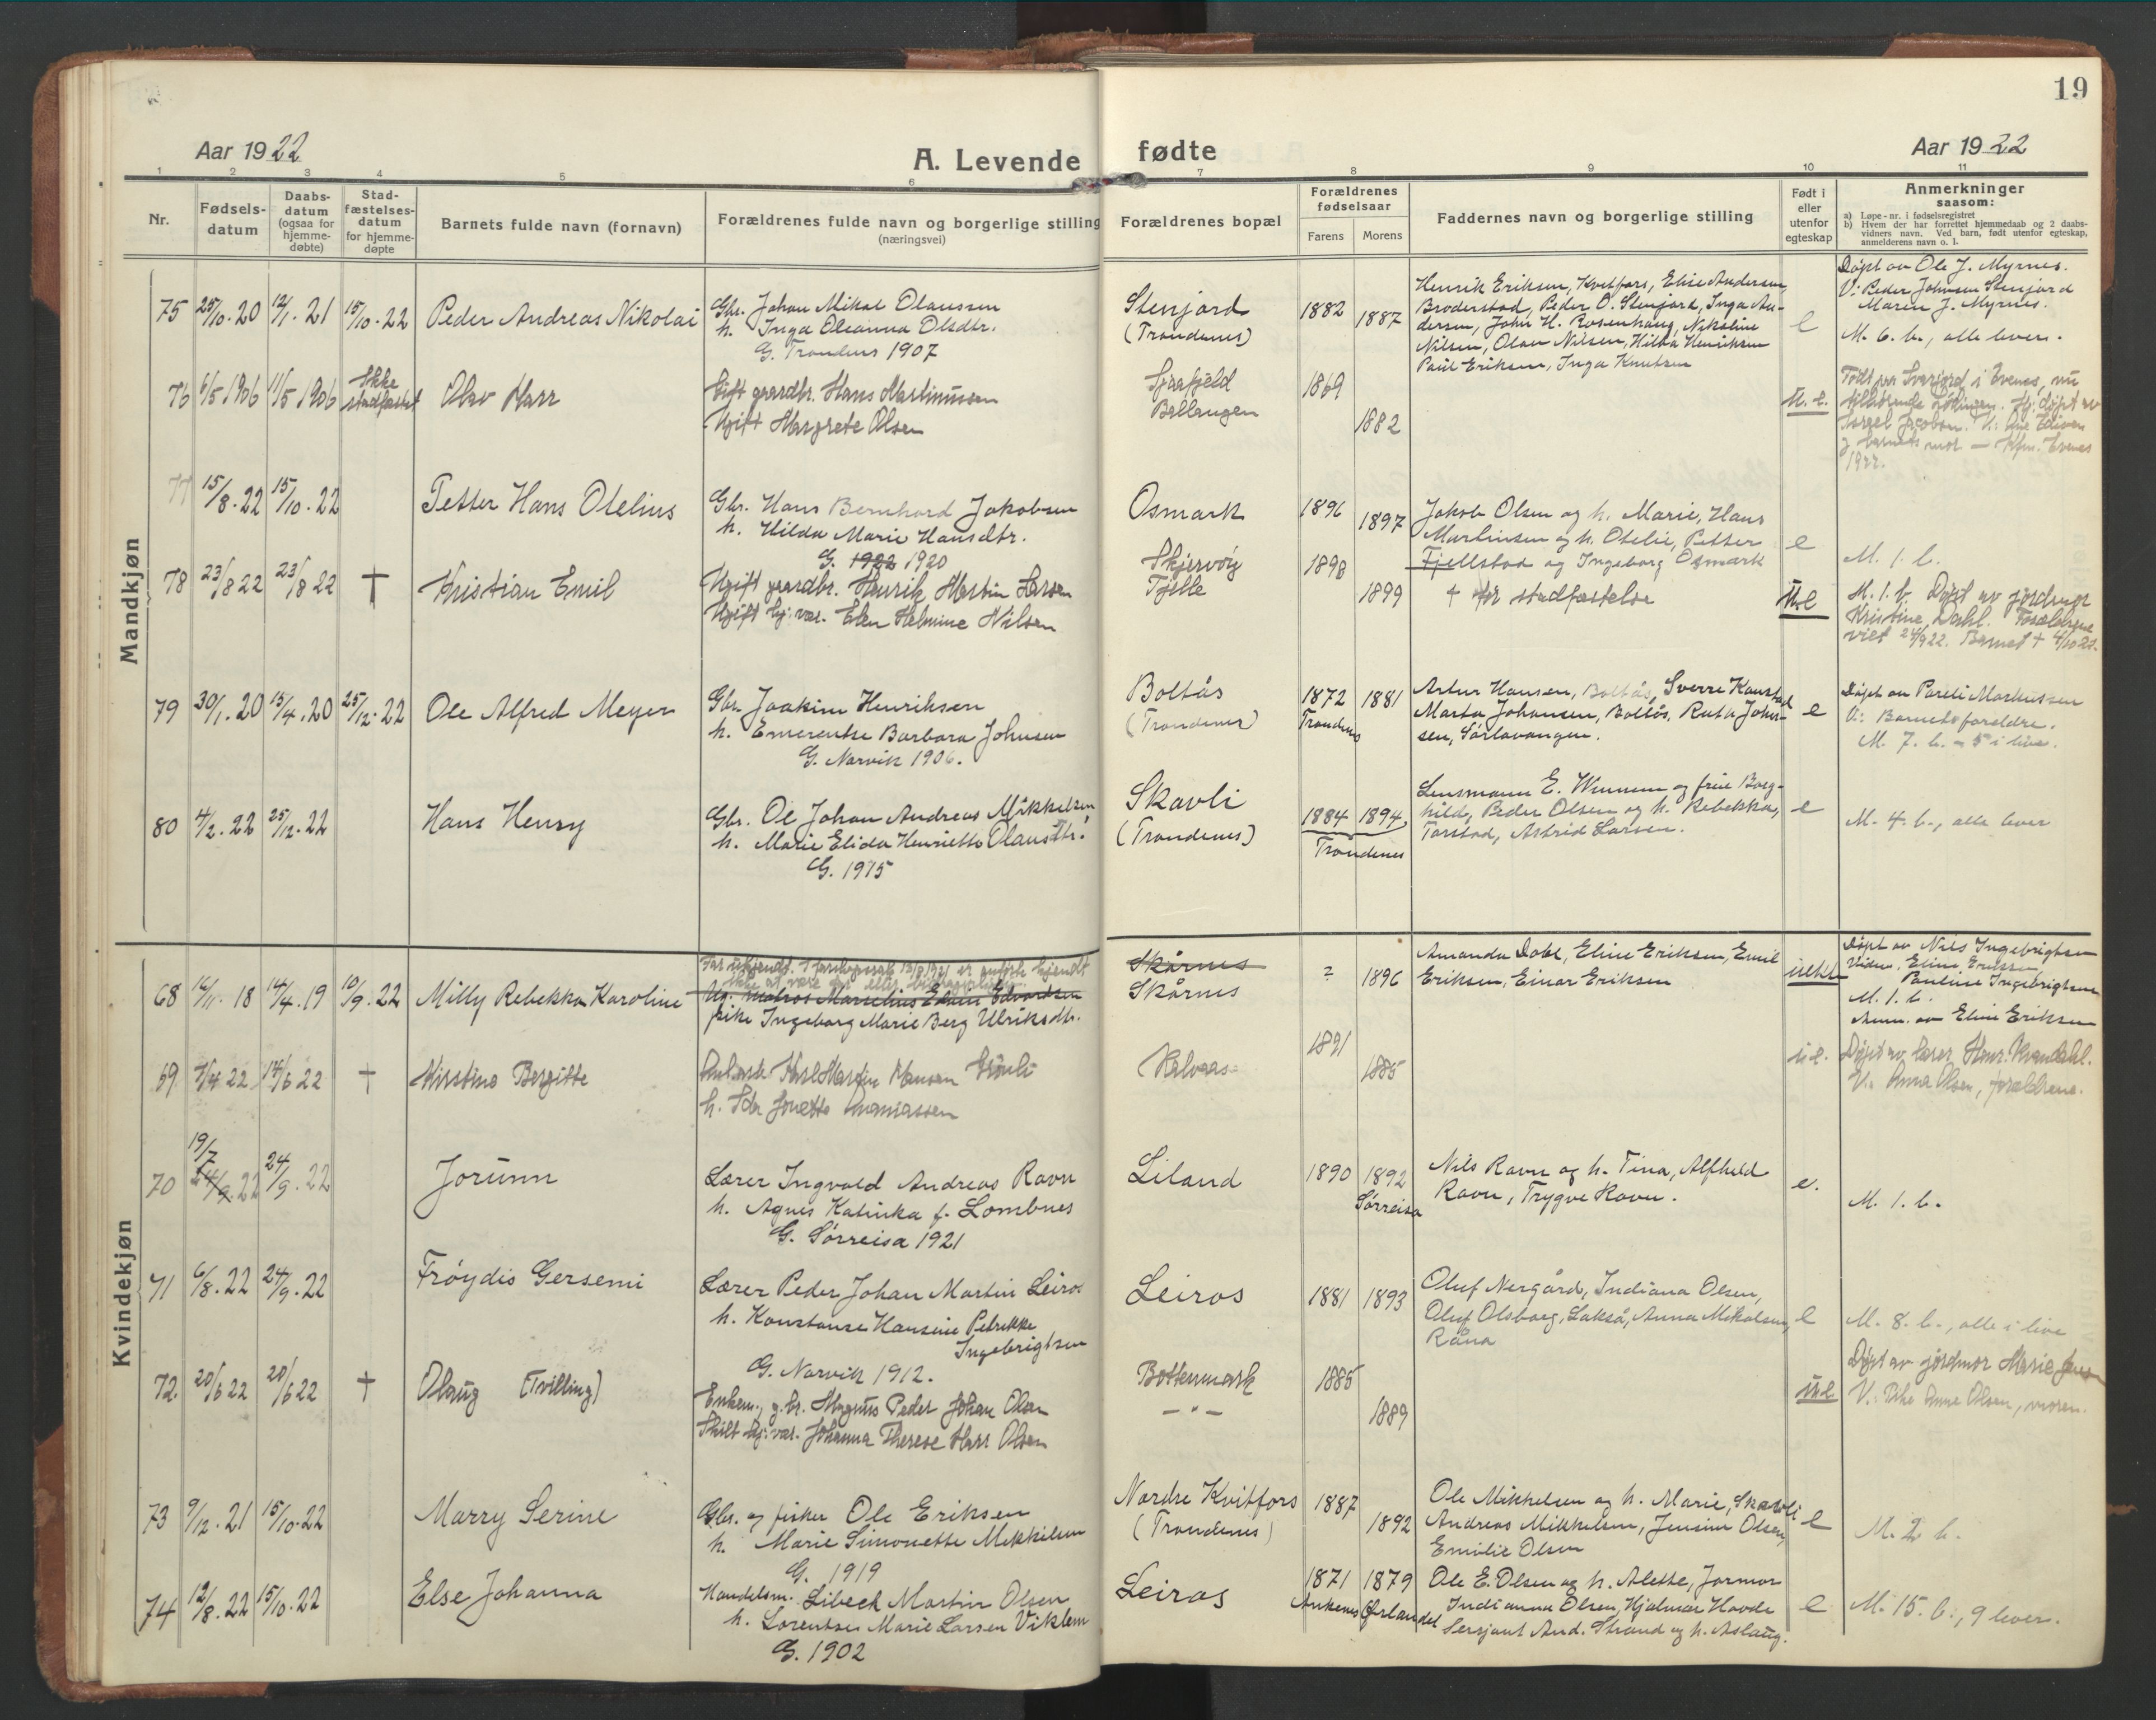 19
Aar 1922
A. Levende
fødte
Aar 1922
1 2 3 4 5 6 7 8 9 10 11
Nr.
Fødsels-
datum
Daabs-
datum
(ogsaa for
hjemme-
døbte)
Stad-
fæstelses-
datum
for hjemme-
døpte
Barnets fulde navn (fornavn)
Forældrenes fulde navn og borgerlige stilling
(næringsvei)
Forældrenes bopæl
Forældrenes
fødselsaar
Farens Morens
Faddernes navn og borgerlige stilling
Født i
eller
utenfor
egteskap
Anmerkninger
saasom:
a) Løpe-nr. i fødselsregistret
b) Hvem der har forrettet hjemmedaab og 2 daabs-
vidners navn. Ved barn, født utenfor egteskap,
anmelderens navn o. l.
Mandkjøn
75 25/10.20 12/1.21 15/10.22 Peder Andreas Nikolai
Gbr. Johan Mikal Olaussen
h. Inga Oleanna Olsdtr.
G. Trondenes 1907
Stenjord
(Trondenes)
1882 1887
Henrik Eriksen, Kvitfors, Elise Andersen
Broderstad, Peder O. Stenjord, Inga An-
dersen, John H. Rosenhaug, Nikoline
Nilsen, Olav Nilsen, Hilda Henriksen
Paul Eriksen, Inga Knutsen
e
Døpt av Ole J. Myrnes.
V: Peder Johnsen Stenjord
Maren J. Myrnes.
M. 6. b., alle lever.
76 6/5 1906 11/5 1906 Ikke
stadfæstet
Olav Harr
Gift gaardbr. Hans Martinussen
Ugift Margrete Olsen
Ballangen
1869
1882
u. e.
Født paa i Evenes, nu
Døpt av
Jacobsen.
barnets mor — Evenes
1922.
77 15/8.22 15/10.22 Petter Hans Otelius
Gbr. Hans Bernhard Jakobsen
h. Hilda Marie Hansdtr.
G. 1922 1920
Osmark
1896 1897
Jakob Olsen og h. Marie, Hans
Martinsen og h. Otelie, Petter
Fjellstad og Ingeborg Osmark
e
M. 1. b.
78 23/8 22 23/8 22 † Kristian Emil
Ugift gaardbr. Henrik Martin Larsen
Ugift hj: vær. Elen Helmine Nilsen
Skjervøy
Tjelle
1898
1899
† før stadfæstelse
u.e
M. 1. b. Døpt av jordmor
Kristine Dahl. Forældrene
viet 24/9 22. Barnet † 4/10 22.
79 30/1.20 15/4.20 25/12.22 Ole Alfred Meyer
Gbr. Joakim Henriksen
h. Emerentse Barbara Johnsen
G. Narvik 1906.
Boltås
(Trondenes)
1872 1881
Trondenes
Artur Hansen, Boltås, Sverre Kanstad
Marta Johansen, Boltås, Ruth Johan-
sen, Sørlavangen.
e
Døpt av Pareli Markussen
V: Barnets foreldre.
M. 7. b. – 5 i live.
80 4/2.22 25/12.22 Hans Henry
Gbr. Ole Johan Andreas Mikkelsen
h. Marie Elida Henriette Olausdtr.
G. 1915
Skavli
(Trondenes)
1884 1894
Trondenes
Lensmann E. Wennem og frue Borg-
hild, Peder Olsen og h. Rebekka,
Tårstad, Astrid Larsen.
e
M. 4. b., alle lever
Kvindekjøn
68 16/11.18 14/4.19 10/9.22 Milly Rebekka Karoline
Far ukjendt.
Ug. matros Marselius Edvardsen
pike Ingeborg Marie Berg Ulriksdtr.
Skårnes
Skårnes
1896
Amanda Dahl, Eline Eriksen, Emil
Eriksen, Einar Eriksen
uekte
Døpt av Nils Ingebrigtsen
Vidner, Eline Eriksen
Pauline Ingebrigtsen
M. 1. b.
Anm. av Eline Eriksen
69 7/4 22 14/6 22 † Kirstine Bergitte
Karl Martin Hansen
h. Ida Jonette Ananiassen
1891
1885
u.e.
Døpt av lærer
V: Anna Olsen, forældrene.
70 19/7 24/9.22 24/9.22 Jorunn
Lærer Ingvald Andreas Ravn
h. Agnes Katinka f. Lombnes
G. Sørreisa 1921
Liland
1890 1892
Sørreisa
Nils Ravn og h. Tina, Alfhild
Ravn, Trygve Ravn.
e.
M. 1. b.
71 6/8.22 24/9.22 Frøydis Gersemi
Lærer Peder Johan Martin Leiros
h. Konstanse Hansine Petrikke
Ingebrigtsen
G. Narvik 1912.
Leiros
1881 1893
Oluf Nergård, Indiana Olsen,
Oluf Olsborg, Lakså, Anna Mikalsen,
Råna
e
M. 8. b., alle i live
72. 20/6 22 20/6 22 † Olaug (Tvilling)
Enkem., g.br. Magnus Peder Johan Olsen
Skilt hj: vær. Johanna Therese Harr Olsen
Bottenmark
— " —
1885
1889
u.e
Døpt av jordmor Marie
V: Pike Anne Olsen, moren.
73 9/12.21 15/10.22 Marry Serine
Gbr. og fisker Ole Eriksen
h. Marie Simonette Mikkelsen
G. 1919
Nordre Kvitfors
(Trondenes)
1887 1892
Ole Mikkelsen og h. Marie, Skavli
Andreas Mikkelsen, Jensine Olsen,
Emilie Olsen
e
M. 2 b.
74 12/8.22 15/10.22 Else Johanna
Handelsm. Libeck Martin Olsen
h. Lorentse Marie Larsen Viklem
G. 1902
Leiros
1871 1879
Ankenes Ørlandet
Ole E. Olsen og h. Alette, Jormor
Indianna Olsen, Hjalmar Hovde
Sersjant And. Strand og h. Aslaug.
e
M. 15. b., 9 lever.